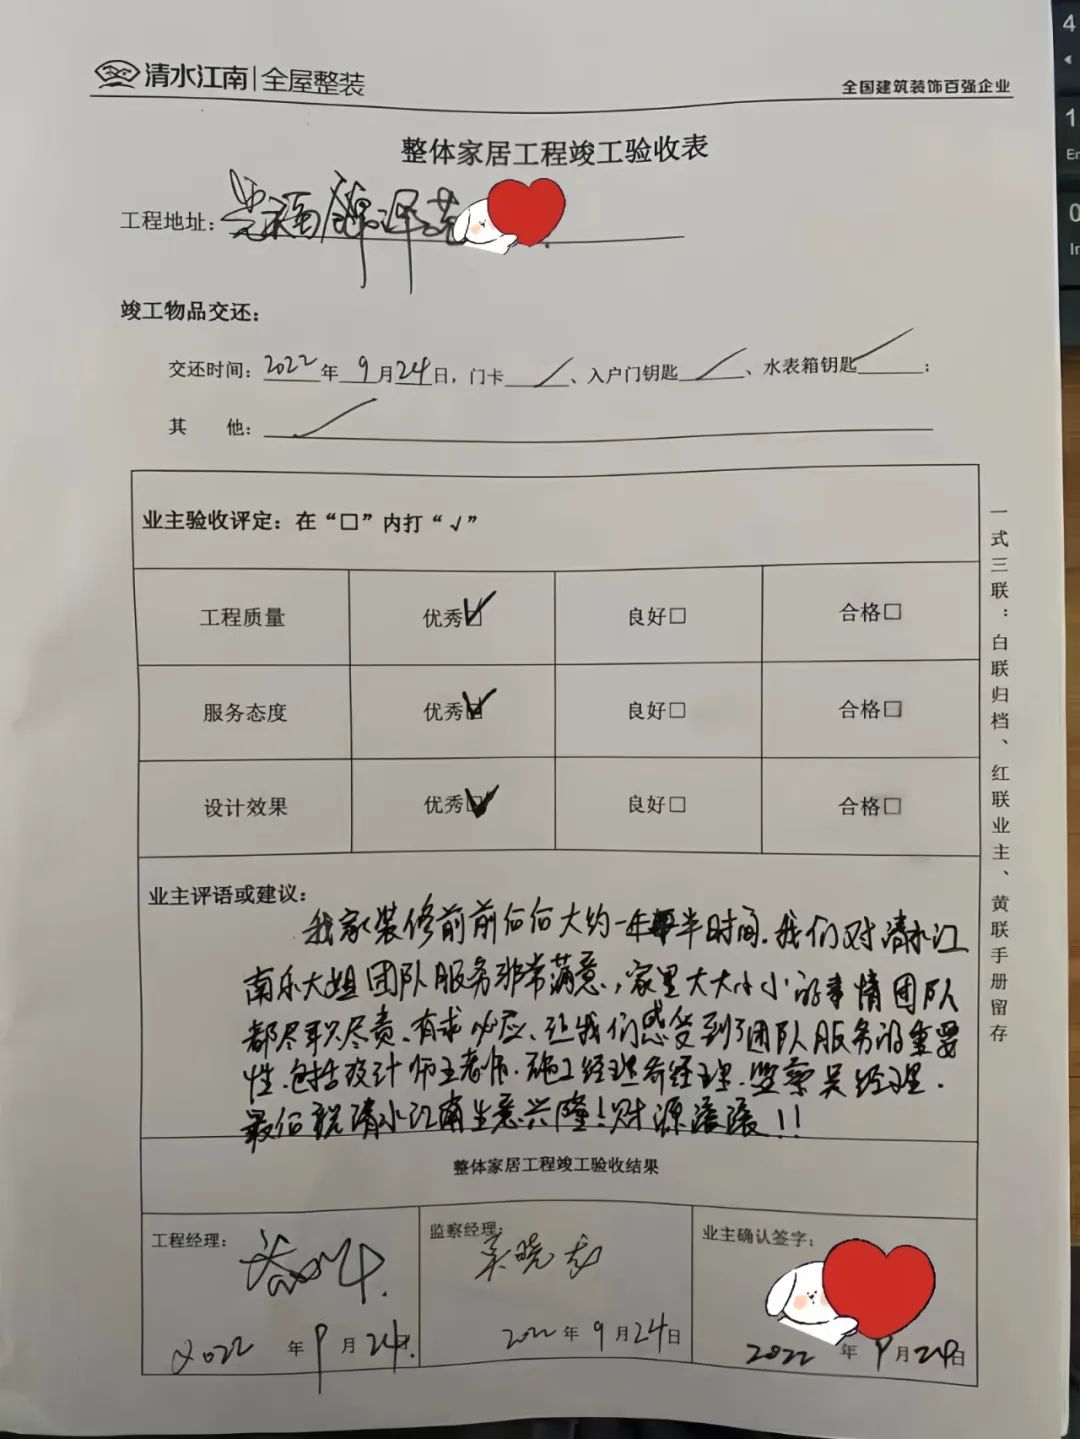 清水江南|全屋整装
全国建筑装饰百强企业
整体家居工程竣工验收表
工程地址:崇福锦泽苑
竣工物品交还:
交还时间:2022年9月24日,门卡/、入户门钥匙/、水表箱钥匙/;
其 他:/
业主验收评定:在“□”内打“√”
工程质量 优秀☑ 良好□ 合格□
服务态度 优秀☑ 良好□ 合格□
设计效果 优秀☑ 良好□ 合格□
业主评语或建议:
我家装修前前后后大约一年半时间.我们对清水江
南乐大姐团队服务非常满意,家里大大小小的事情团队
都尽职尽责、有求必应、让我们感受到了团队服务的重要
性.包括设计师王老师.施工经理 经理.监察吴经理.
最后祝清水江南生意兴隆!财源滚滚!!
整体家居工程竣工验收结果
工程经理:
2022年9月24日
监察经理:
吴晓
2022年9月24日
业主确认签字:
2022年9月24日
一式三联:白联归档、红联业主、黄联手册留存
4
1
0